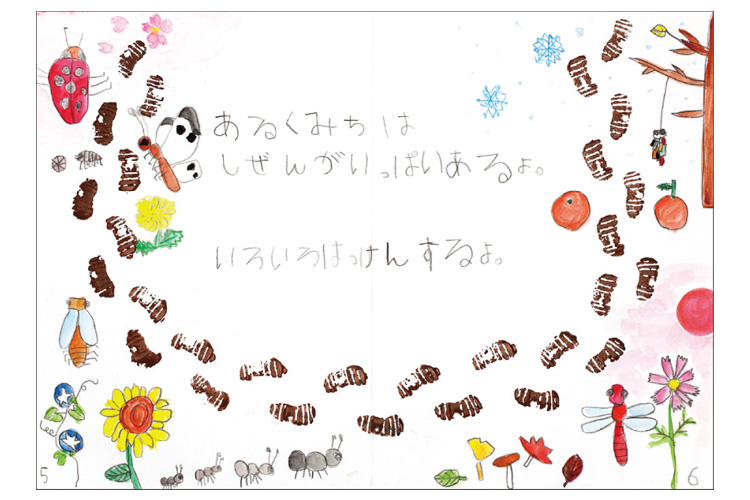 あるくみちは
しぜんがいっぱいあるよ。
いろいろはっけんするよ。
5
6